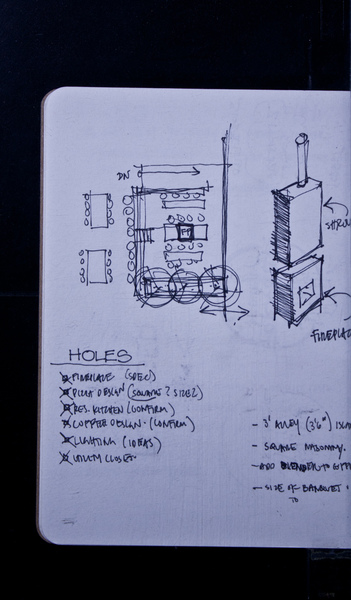 DN
FP
SHROU
FIREPLAC
HOLES
FIREPLACE (SPEC)
PIZZA DESIGN (SQUARE? SIZE?)
RES. KITCHEN (CONFIRM)
COFFEE DESIGN (CONFIRM)
LIGHTING (IDEAS)
UTILITY CLOSET
- 3' ALLEY (3'6")
- SQUARE
- ADD BLENDER TO
- SIZE OF BANQUET
TO